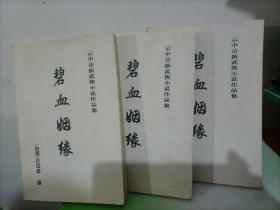 云中岳新武侠小说作品集
碧血姻缘
〔台湾〕云中岳 著
云中岳新武侠小说作品集
碧血姻缘
云中岳新武侠小说作品集
碧血姻缘